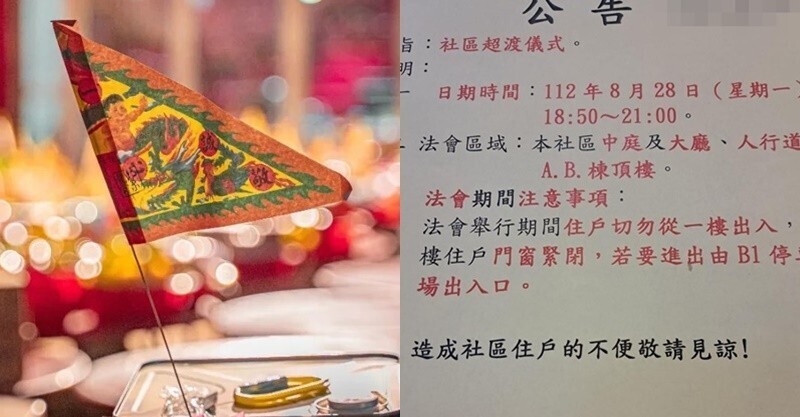 公告
旨：社區超渡儀式。
明：
一 日期時間：112年8月28日（星期一）
18:50～21:00。
法會區域：本社區中庭及大廳、人行道
A.B.棟頂樓。
法會期間注意事項：
法會舉行期間住戶切勿從一樓出入，
樓住戶門窗緊閉，若要進出由B1停
場出入口。
造成社區住戶的不便敬請見諒!